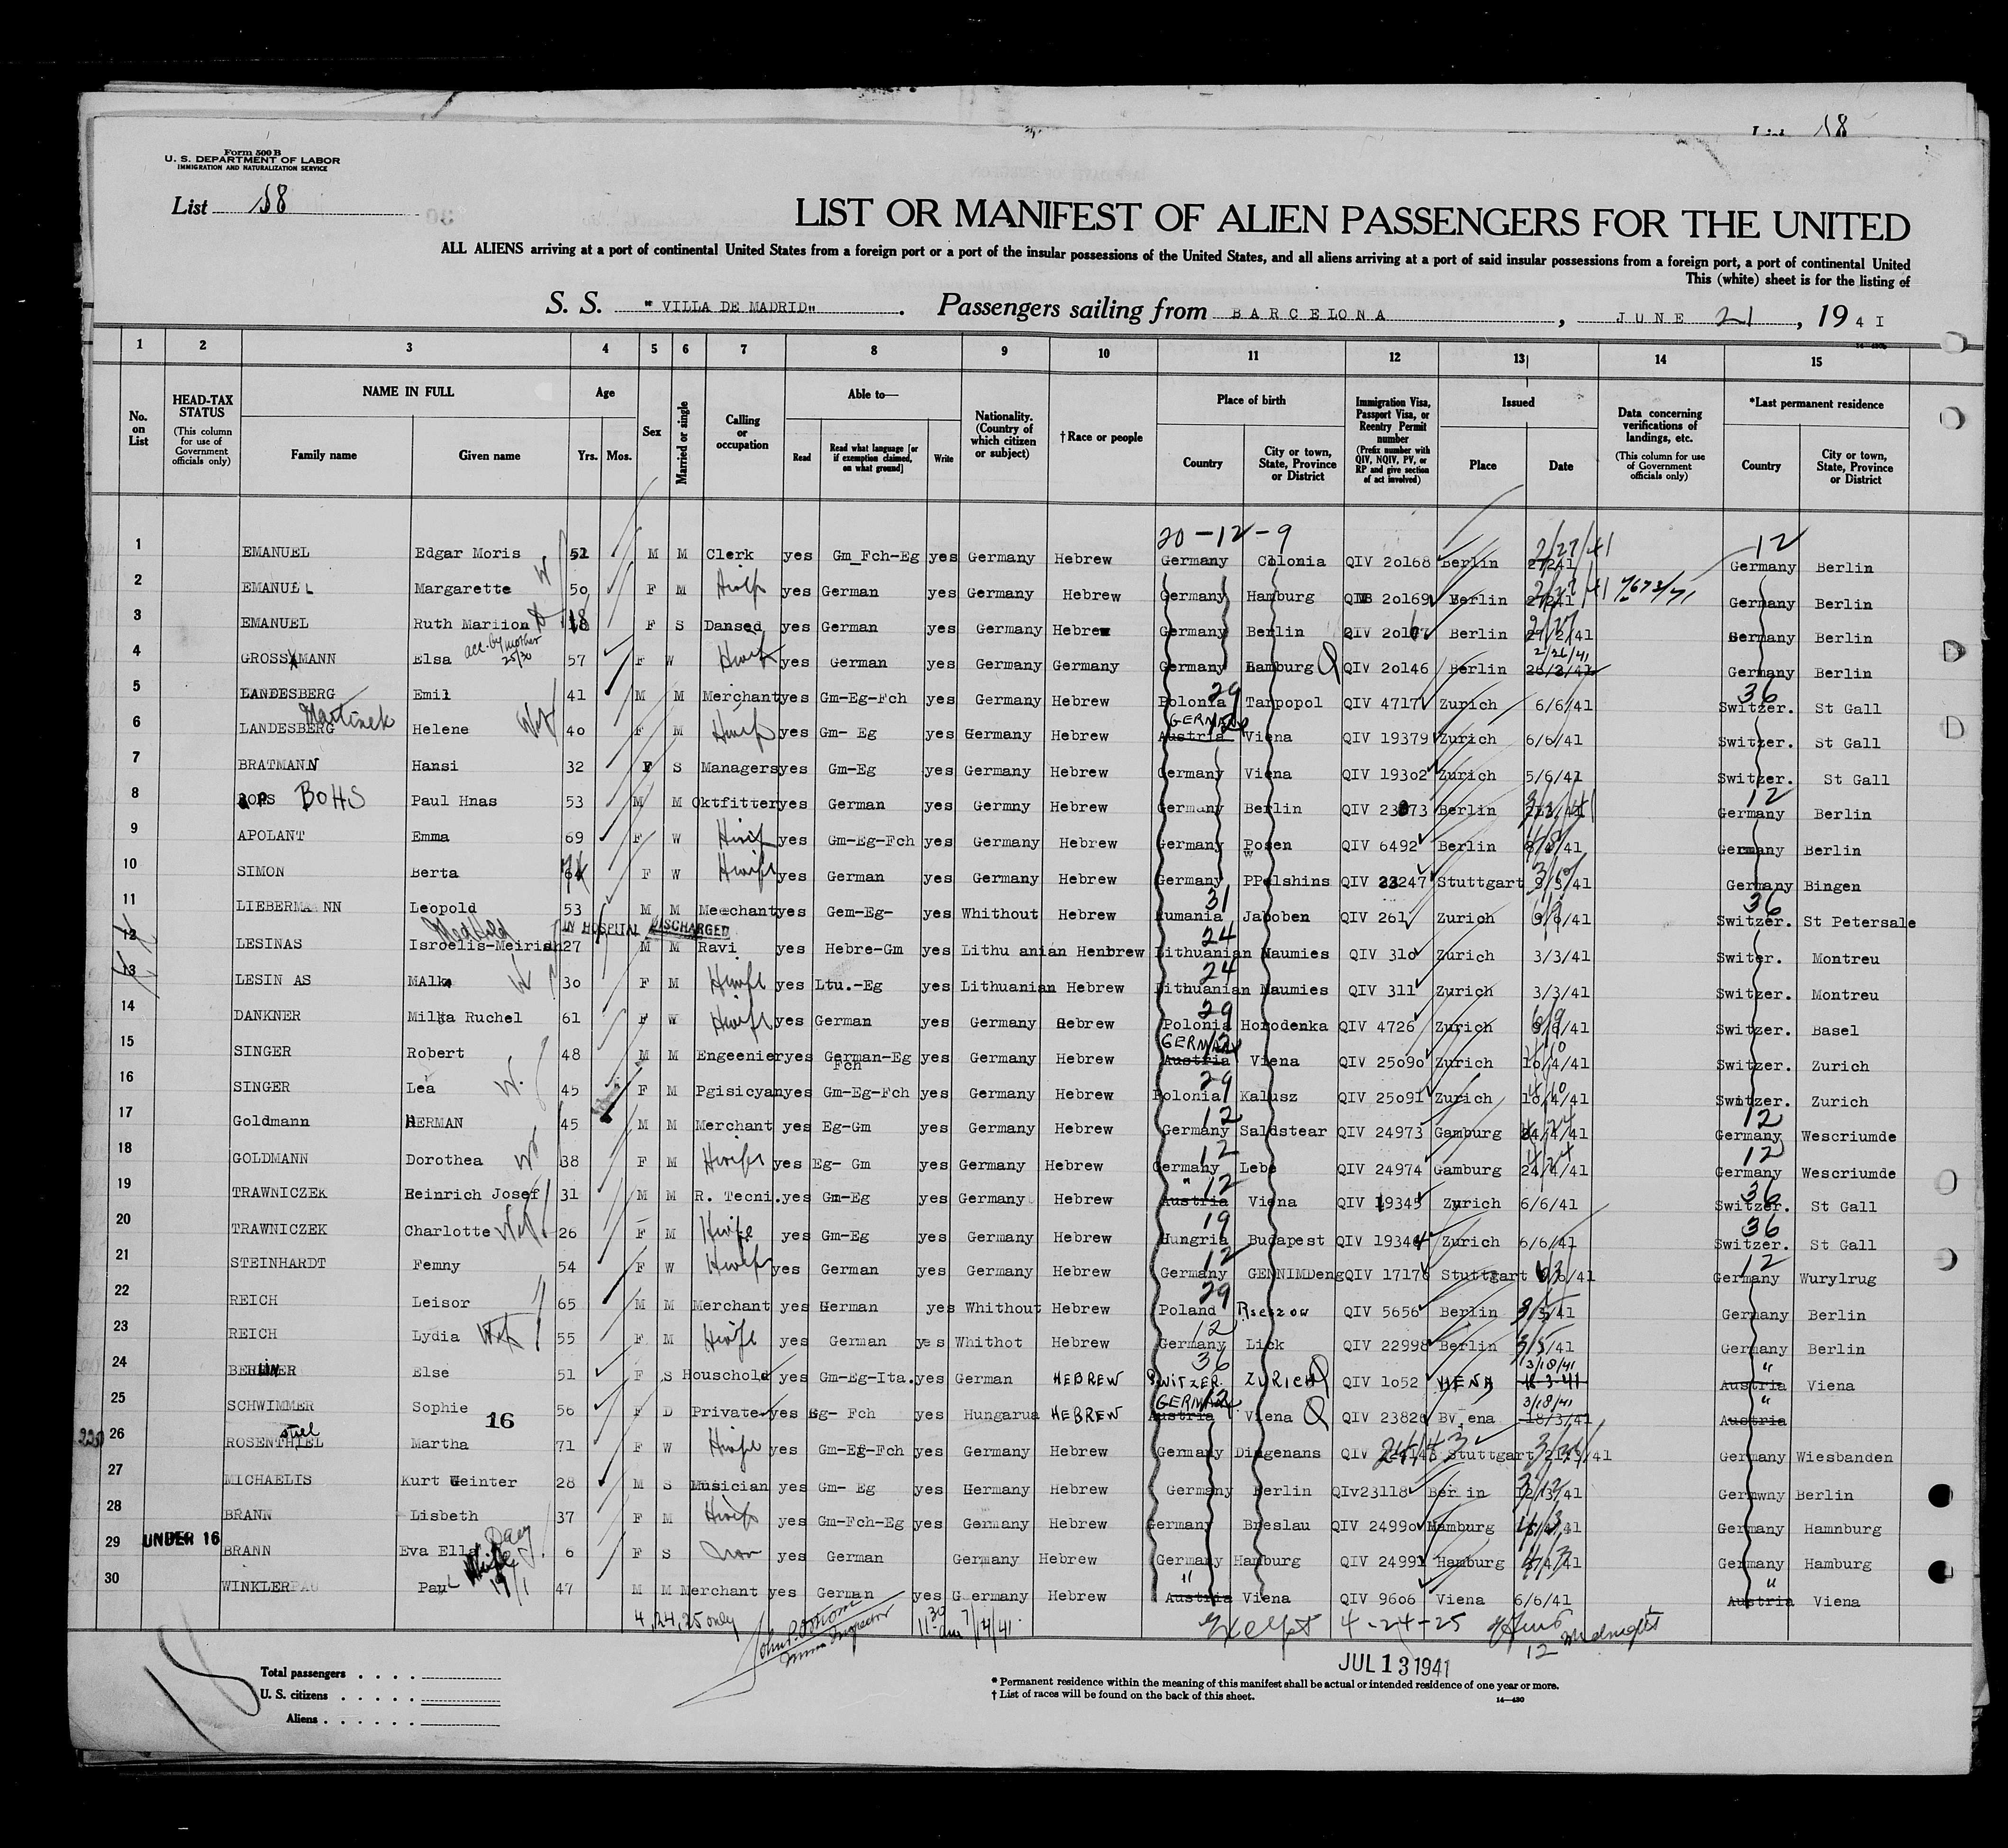 List 18
Form 500 B
U. S. DEPARTMENT OF LABOR
IMMIGRATION AND NATURALIZATION SERVICE
List 18
LIST OR MANIFEST OF ALIEN PASSENGERS FOR THE UNITED
ALL ALIENS arriving at a port of continental United States from a foreign port or a port of the insular possessions of the United States, and all aliens arriving at a port of said insular possessions from a foreign port, a port of continental United
This (white) sheet is for the listing of
S. S. "VILLA DE MADRID" . Passengers sailing from BARCELONA , JUNE 21 , 19 4I
1 2 3 4 5 6 7 8 9 10 11 12 13 14 15
No. on List HEAD-TAX STATUS (This column for use of Government officials only) NAME IN FULL Family name Given name Age Yrs. Mos. Sex Married or single Calling or occupation Able to— Read Read what language [or if exemption claimed, on what ground] Write Nationality. (Country of which citizen or subject) †Race or people Place of birth Country City or town, State, Province or District Immigration Visa, Passport Visa, or Reentry Permit number (Prefix number with QIV, NQIV, PV, or RP and give section of act involved) Issued Place Date Data concerning verifications of landings, etc. (This column for use of Government officials only) *Last permanent residence Country City or town, State, Province or District
20-12-9 2/27/41 12
1 EMANUEL Edgar Moris 52 M M Clerk yes Gm_Fch-Eg yes Germany Hebrew Germany Colonia QIV 2o168 Berlin 27241 Germany Berlin
2 EMANUEL Margarette W 50 F M Hwife yes German yes Germany Hebrew Germany Hamburg 2o169 Berlin Germany Berlin
3 EMANUEL Ruth Mariion 18 F S Dansed yes German yes Germany Hebrew Germany Berlin QIV Berlin 27/2/41 Germany Berlin
acc. by mother 25/30 2/26/41
4 GROSSMANN Elsa 57 F W Hwife yes German yes Germany Germany Germany Hamburg QIV 2o146 Berlin 26/2/41 Germany Berlin
29 36
5 LANDESBERG Emil 41 M M Merchant yes Gm-Eg-Fch yes Germany Hebrew Polonia Tarpopol QIV 4717 Zurich 6/6/41 Switzer. St Gall
Martinek GERMANY 12
6 LANDESBERG Helene 4o F M Hwife yes Gm- Eg yes Germany Hebrew Austria Viena QIV 19379 Zurich 6/6/41 Switzer. St Gall
7 BRATMANN Hansi 32 F S Managers yes Gm-Eg yes Germany Hebrew Germany Viena QIV 193o2 Zurich 5/6/41 Switzer. St Gall
12
8 BOHS Paul Hnas 53 M M Oktfitter yes German yes Germny Hebrew Germany Berlin QIV Berlin Germany Berlin
9 APOLANT Emma 69 F W Hwife yes Gm-Eg-Fch yes Germany Hebrew Germany Posen QIV 6492 Berlin Germany Berlin
10 SIMON Berta F W Hwife yes German yes Germany Hebrew Germany PPelshins QIV 23247 Stuttgart Germany Bingen
31 36
11 LIEBERMANN Leopold 53 M M Meechant yes Gem-Eg- yes Whithout Hebrew Rumania Jaboben QIV 261 Zurich Switzer. St Petersale
Med Hold IN HOSPITAL DISCHARGED 24
12 LESINAS Isroelis-Meirish 27 M M Ravi yes Hebre-Gm yes Lithu anian Henbrew Lithuanian Naumies QIV 31o Zurich 3/3/41 Switer. Montreu
24
13 LESIN AS MAlka W 3o F M Hwife yes Ltu.-Eg yes Lithuanian Hebrew Lithuanian Naumies QIV 311 Zurich 3/3/41 Switzer. Montreu
29
14 DANKNER Milka Ruchel 61 F W Hwife yes German yes Germany Hebrew Polonia Horodenka QIV 4726 Zurich Switzer. Basel
GERMANY 12
15 SINGER Robert 48 M M Engeenier yes German-Eg Fch yes Germany Hebrew Austria Viena QIV 25o9o Zurich 10/4/41 Switzer. Zurich
29
16 SINGER Lea W. 45 F M Pgisicyan yes Gm-Eg-Fch yes Germany Hebrew Polonia Kalusz QIV 25o91 Zurich 10/4/41 Switzer. Zurich
12 12
17 Goldmann HERMAN 45 M M Merchant yes Eg-Gm yes Germany Hebrew Germany Saldstear QIV 24973 Gamburg 24/4/41 Germany Wescriumde
12 12
18 GOLDMANN Dorothea W 38 F M Hwife yes Eg- Gm yes Germany Hebrew Germany Lebe QIV 24974 Gamburg 24/4/41 Germany Wescriumde
" 12 36
19 TRAWNICZEK Heinrich Josef 31 M M R. Tecni. yes Gm-Eg yes Germany Hebrew Austria Viena QIV 19345 Zurich 6/6/41 Switzer. St Gall
19 36
20 TRAWNICZEK Charlotte 26 F M Hwife yes Gm-Eg yes Germany Hebrew Hungria Budapest QIV 19344 Zurich 6/6/41 Switzer. St Gall
12 12
21 STEINHARDT Femny 54 F W Hwife yes German yes Germany Hebrew Germany GENNIMDeng QIV 17176 Stuttgart Germany Wurylrug
29
22 REICH Leisor 65 M M Merchant yes German yes Whithout Hebrew Poland Rseszow QIV 5656 Berlin 3/5/41 Germany Berlin
12
23 REICH Lydia 55 F M Hwife yes German yes Whithot Hebrew Germany Lick QIV 22998 Berlin 3/5/41 Germany Berlin
36 3/18/41 "
24 BERLINER Else 51 F S Houschold yes Gm-Eg-Ita. yes German HEBREW SWITZER. ZURICH QIV 1o52 VIENA 18-3-41 Austria Viena
GERMANY 12 3/18/41 "
25 SCHWIMMER Sophie 16 56 F D Private yes Eg- Fch yes Hungarua HEBREW Austria Viena QIV 2382 Bv.ena 18/3/41 Austria
220 stiel
26 ROSENTHIEL Martha 71 F W Hwife yes Gm-Eg-Fch yes Germany Hebrew Germany Dingenans QIV Stuttgart Germany Wiesbanden
27 MICHAELIS Kurt Geinter 28 M S Musician yes Gm- Eg yes Hermany Hebrew Germany Berlin QIv23118 Berlin 12/3/41 Germwny Berlin
28 BRANN Lisbeth 37 F M Hwife yes Gm-Fch-Eg yes Germany Hebrew Germany Breslau QIV 2499o Hamburg Germany Hamnburg
29 UNDER 16 BRANN Eva Ella 6 F S yes German Germany Hebrew Germany Hamburg QIV 24991 Hamburg Germany Hamburg
" "
30 WINKLER Paul 47 M M Merchant yes German yes Germany Hebrew Austria Viena QIV 96o6 Viena 6/6/41 Austria Viena
4,24,25 only 11:30 am 7/14/41 Except 4-24-25 12 Midnight
Immn Inspector
JUL 13 1941
18
Total passengers . . . .
U. S. citizens . . . . .
Aliens . . . . . .
* Permanent residence within the meaning of this manifest shall be actual or intended residence of one year or more.
† List of races will be found on the back of this sheet.
14—430